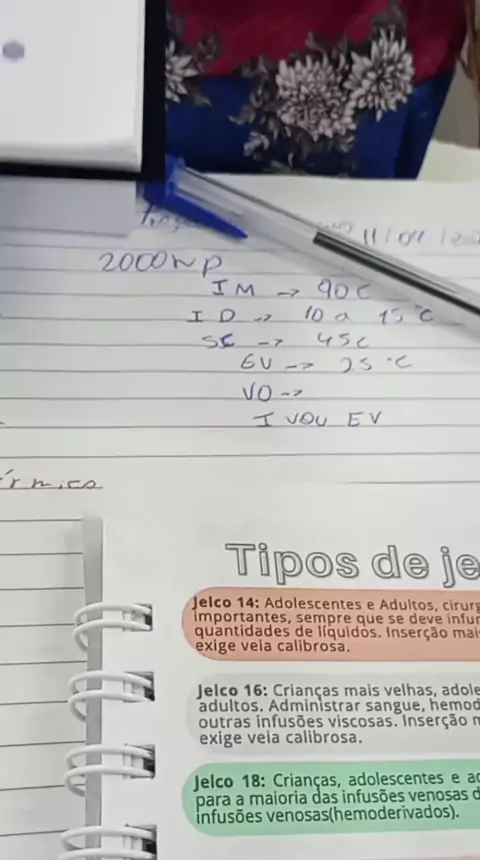 11/04/20
2000 NP
IM -> 90 C
ID -> 10 a 15°C
SC -> 45 C
EV -> 25°C
VO ->
I VOU EV
érmico
Tipos de je
Jelco 14: Adolescentes e Adultos, cirurg
importantes, sempre que se deve infun
quantidades de líquidos. Inserção mai
exige veia calibrosa.
Jelco 16: Crianças mais velhas, adole
adultos. Administrar sangue, hemod
outras infusões viscosas. Inserção m
exige veia calibrosa.
Jelco 18: Crianças, adolescentes e ad
para a maioria das infusões venosas d
infusões venosas(hemoderivados).